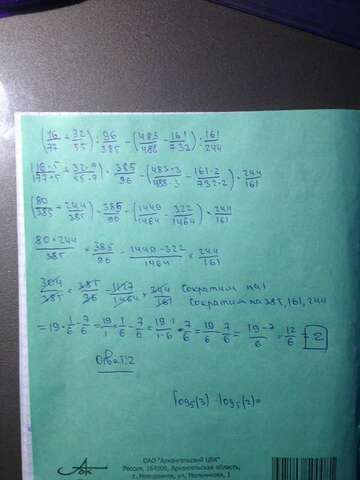 (16/77 + 32/55) : 96/385 - (483/488 - 161/732) : 161/244
(16·5/77·5 + 32·7/55·7) · 385/96 - (483·3/488·3 - 161·2/732·2) · 244/161
(80/385 + 244/385) · 385/96 - (1449/1464 - 322/1464) · 244/161
80+244/385 · 385/96 - 1449-322/1464 · 244/161
304/385 · 385/96 - 1127/1464 · 244/161 Сократим на
Сократим на 385, 161, 244
= 19 · 1/6 - 7/6 = 19/1 · 1/6 - 7/6 = 19·1/1·6 - 7/6 = 19/6 - 7/6 = 19-7/6 = 12/6 = 2
Ответ: 2
log₅(3) · log₅(2) =
АЦБК
ОАО "Архангельский ЦБК"
Россия, 164900, Архангельская область,
г. Новодвинск, ул. Мельникова, 1